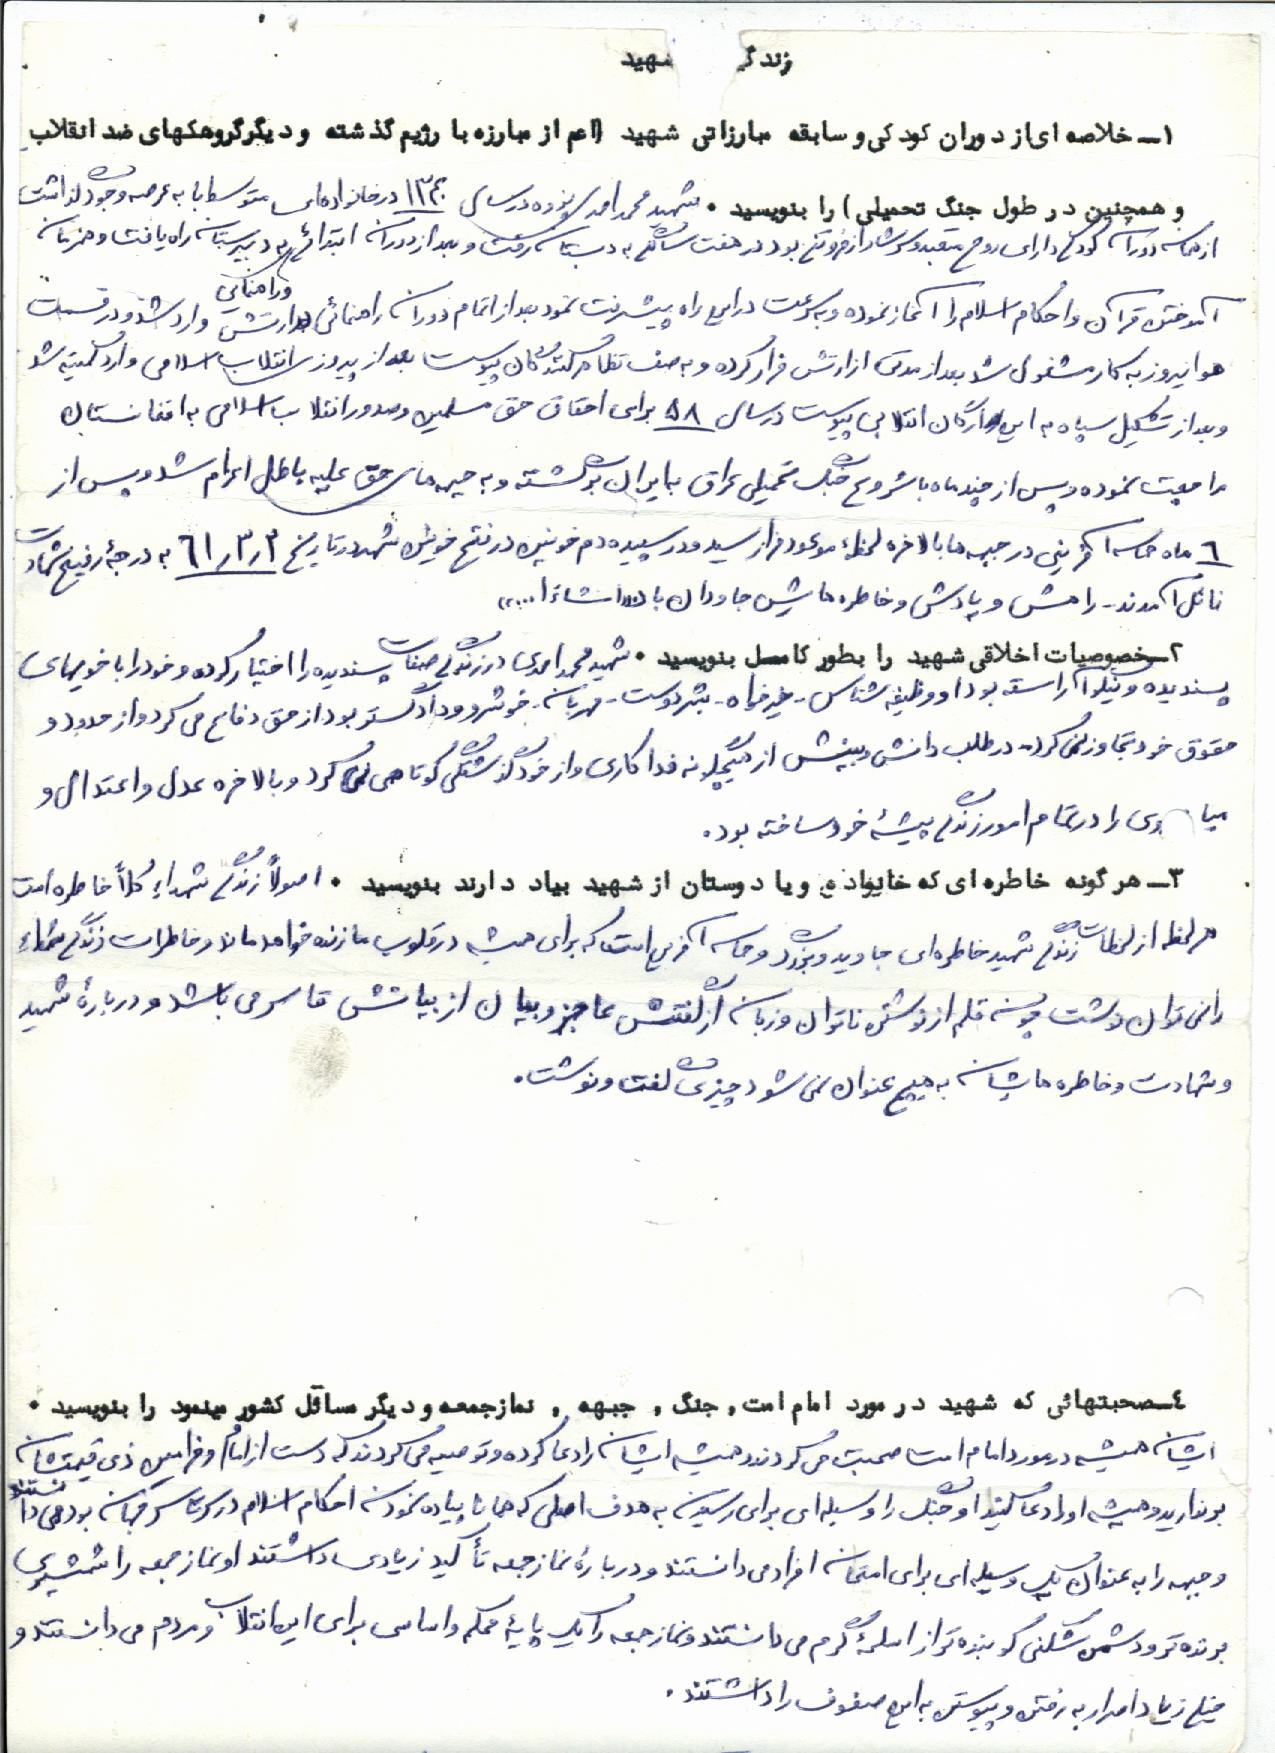 زندگ شهید
۱ــ خلاصه ای از دوران کودکی و سابقه مبارزاتی شهید (اعم از مبارزه با رژیم گذشته و دیگر گروهکهای ضد انقلاب
و همچنین در طول جنگ تحمیلی) را بنویسید. شهید محمد احمدی در سال ۱۳۴۰ در خانواده‌ای متوسط پا به عرصه وجود گذاشت
از همان دوران کودکی دارای روح متعبد و سرشار از فروتنی بود در هفت سالگی به دبستان رفت و بعد از دوران ابتدائی به دبیرستان راه یافت و همزمان
و راهنمایی
آموختن قرآن و احکام اسلام را آغاز نموده و به سرعت در این راه پیشرفت نمود بعد از اتمام دوران راهنمائی در ارتش وارد شد و در قسمت
هوانیروز به کار مشغول شد بعد از مدتی از ارتش فرار کرده و به صف تظاهرکنندگان پیوست بعد از پیروزی انقلاب اسلامی وارد کمیته شد
و بعد از تشکیل سپاه به این ارگان انقلابی پیوست در سال ۵۸ برای احقاق حق مسلمین و صدور انقلاب اسلامی به افغانستان
مراجعت نموده و پس از چند ماه با شروع جنگ تحمیلی عراق با ایران برگشته و به جبهه های حق علیه باطل اعزام شد و پس از
۶ ماه حماسه آفرینی در جبهه ها بالاخره لحظه موعود فرا رسید و در سپیده دم خونین در فتح خونین شهر در تاریخ ۳ر۳ر۶۱ به درجهٔ رفیع شهادت
نائل آمدند ـ راهش و یادش و خاطره هایش جاودان باد انشاءا...
۲ــ خصوصیات اخلاقی شهید را بطور کامل بنویسید. شهید محمد احمدی در زندگی صفات پسندیده را اختیار کرده و خود را با خویهای
پسندیده و نیکو آراسته بود او وظیفه شناس ـ خیرخواه ـ بشردوست ـ مهربان ـ خوشرو و دادگستر بود از حق دفاع می کرد و از حدود و
حقوق خود تجاوز نمی کرد ـ در طلب دانش و بینش از هیچگونه فداکاری و از خود گذشتگی کوتاهی نمی کرد و بالاخره عدل و اعتدال و
میا روی را در تمام امور زندگی پیشهٔ خود ساخته بود.
۳ــ هر گونه خاطره ای که خانواده و یا دوستان از شهید بیاد دارند بنویسید. اصولاً زندگی شهداء کلاً خاطره است
هر لحظه از لحظات زندگی شهید خاطره‌ای جاوید و بزرگ و حماسه آفرین است که برای همیشه در قلوب ما زنده خواهد ماند و خاطرات زندگی شهداء
را نمی توان نوشت چون قلم از نوشتن ناتوان و زبان از گفتنش عاجز و بیان از بیانش قاصر می باشد و دربارهٔ شهید
و شهادت و خاطره هایشان به هیچ عنوان نمی شود چیزی گفت و نوشت.
۴ــ صحبتهائی که شهید در مورد امام امت, جنگ, جبهه, نماز جمعه و دیگر مسائل کشور مینمود را بنویسید.
ایشان همیشه در مورد امام امت صحبت می کردند و همیشه ایشان را دعا کرده و توصیه می کردند که دست از امام و فرامین ذی قیمتشان
برندارید و همیشه او را دعا کنید او جنگ را وسیله‌ای برای رسیدن به هدف اصلی که همانا پیاده نمودن احکام اسلام در سرتاسر جهان بود می دانستند
و جبهه را به عنوان یک وسیله ای برای امتحان افراد می دانستند و دربارهٔ نماز جمعه تأکید زیادی داشتند او نماز جمعه را شمشیری
برنده تر و دشمن شکنی کوبنده تر از اسلحهٔ گرم می دانستند و نماز جمعه را یک پایهٔ محکم و اساسی برای این انقلاب و مردم می دانستند و
خیلی زیاد اصرار به رفتن و پیوستن به این صفوف را داشتند.